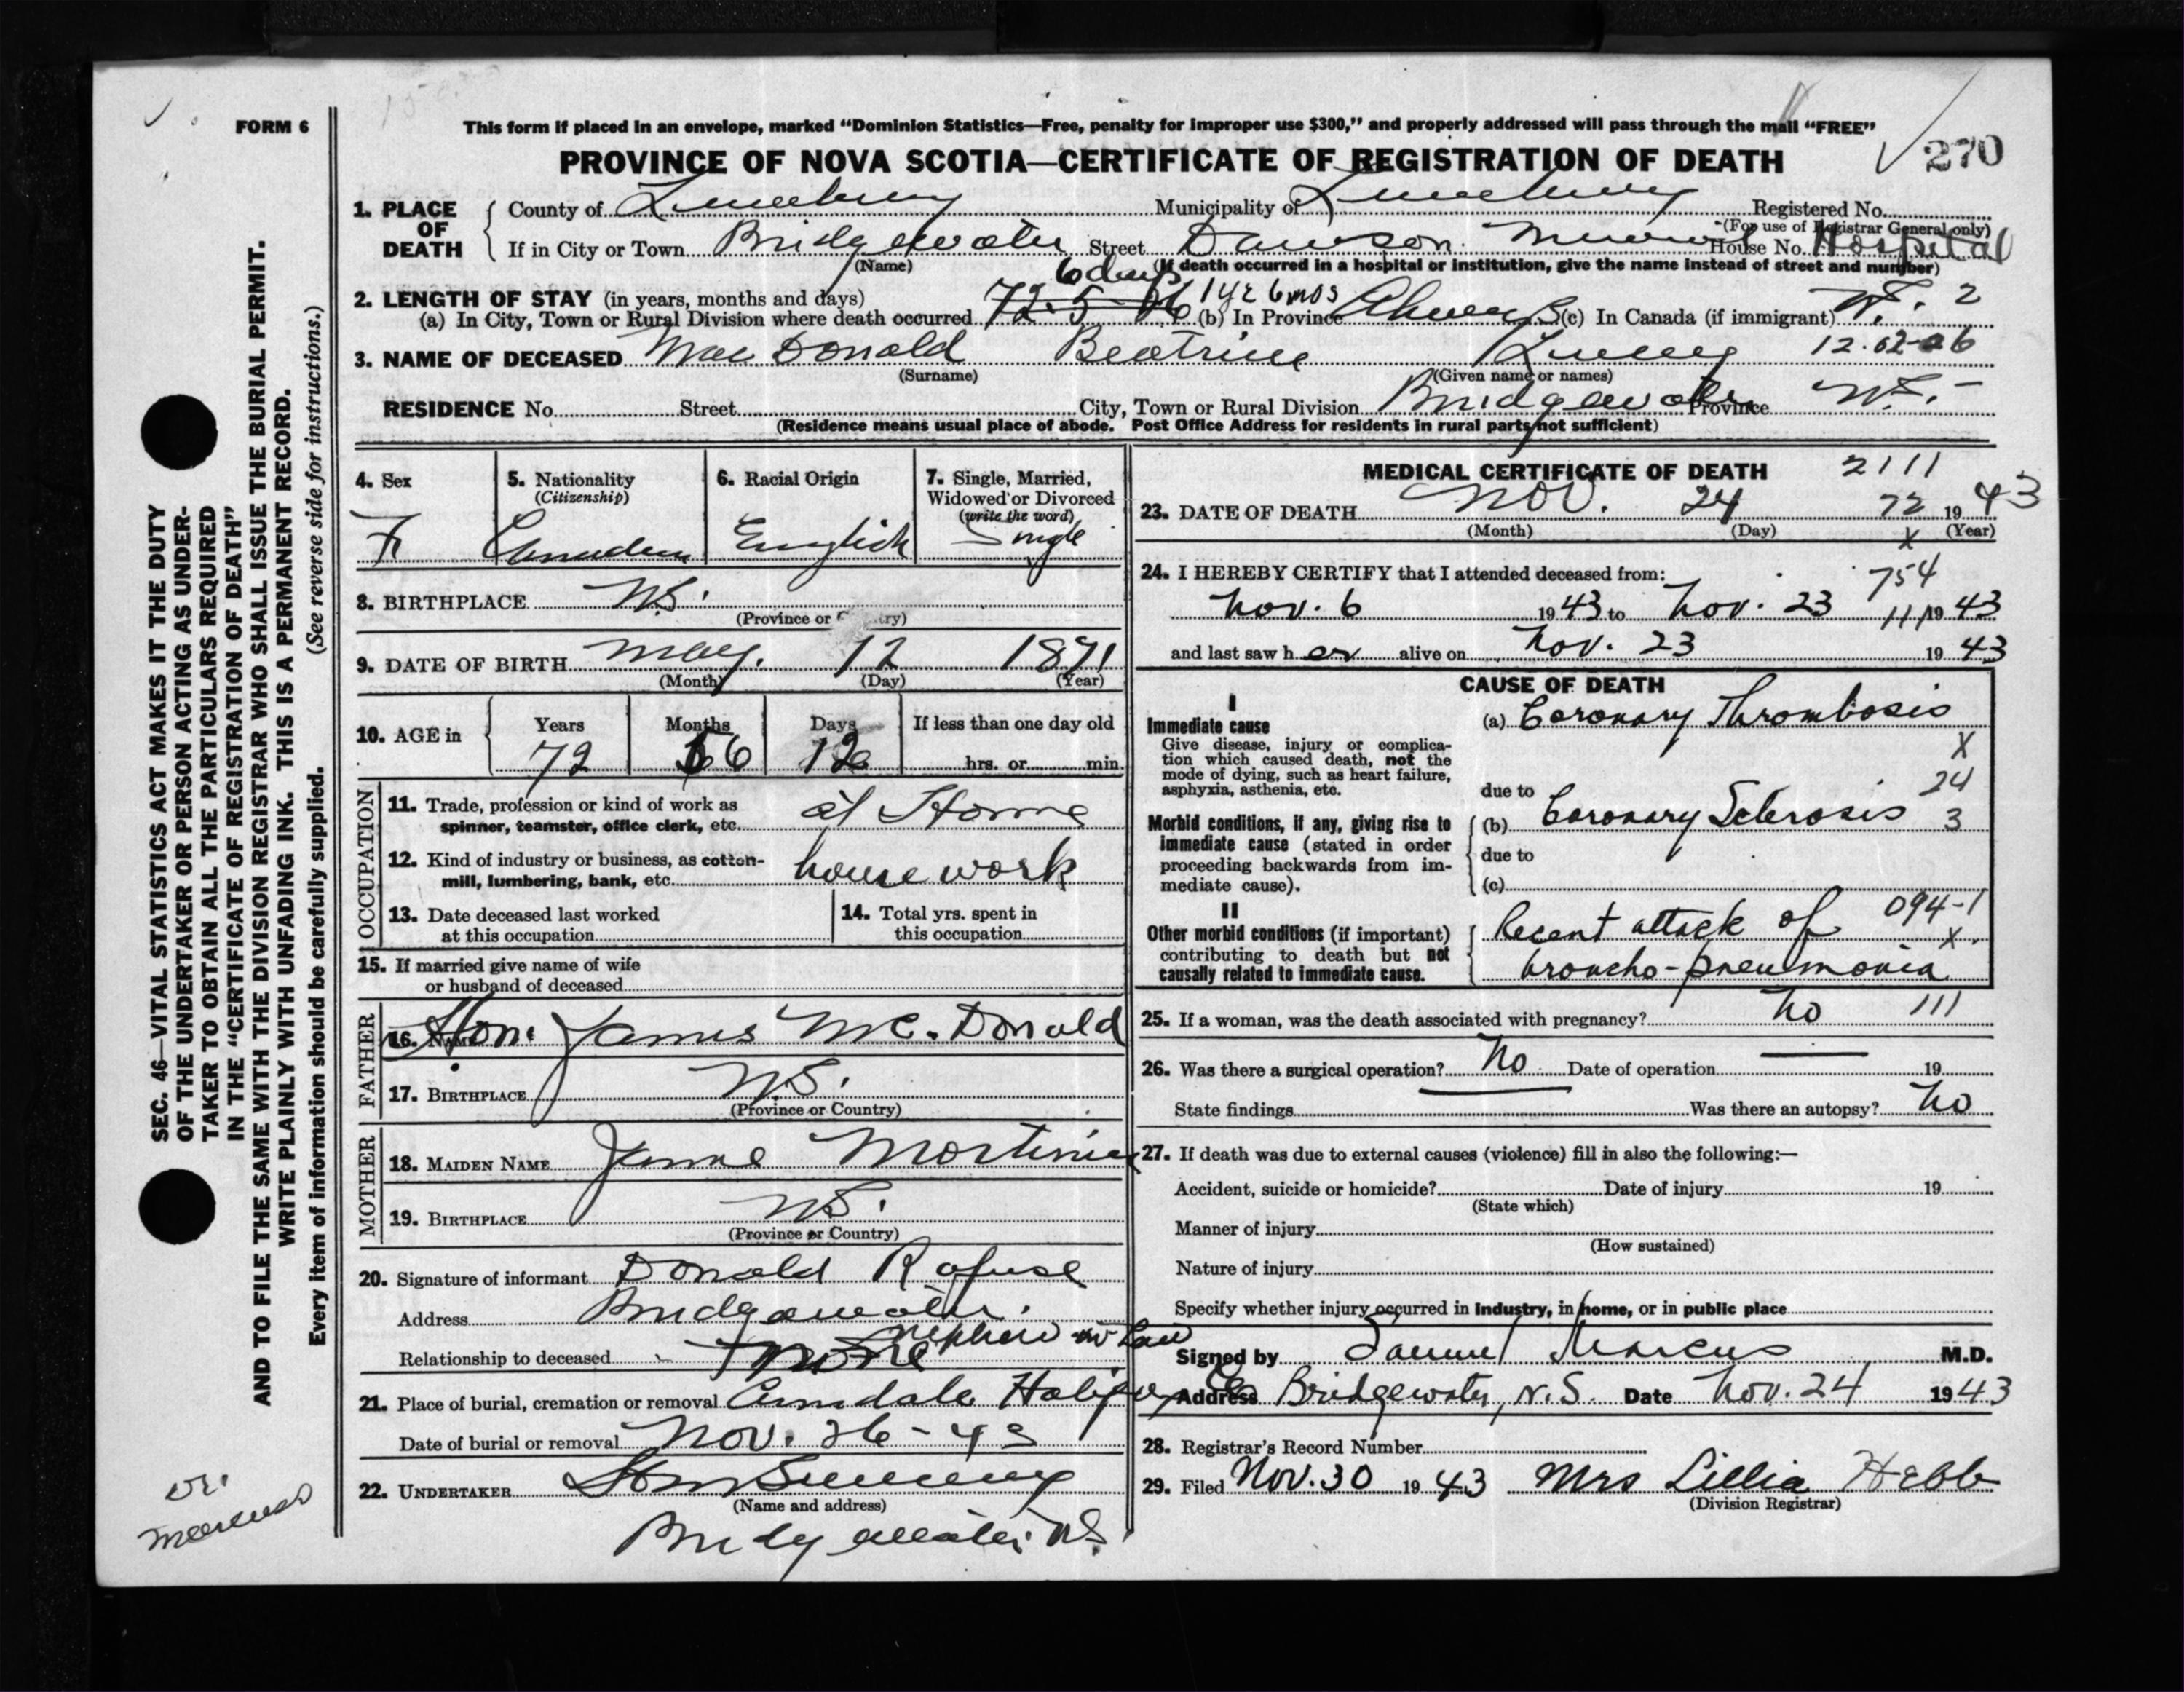 FORM 6
This form if placed in an envelope, marked "Dominion Statistics—Free, penalty for improper use $300," and properly addressed will pass through the mail "FREE"
PROVINCE OF NOVA SCOTIA—CERTIFICATE OF REGISTRATION OF DEATH
270
1. PLACE OF DEATH
County of Lunenburg Municipality of Lunenburg Registered No.
(For use of Registrar General only)
If in City or Town Bridgewater Street Dawson Memorial House No. Hospital
(Name) (If death occurred in a hospital or institution, give the name instead of street and number)
6 days
2. LENGTH OF STAY (in years, months and days)
(a) In City, Town or Rural Division where death occurred 72-5 1 yr 6 mos (b) In Province Always (c) In Canada (if immigrant) 2
3. NAME OF DECEASED MacDonald Beatrice 12.02-26
(Surname) (Given name or names)
RESIDENCE No. Street City, Town or Rural Division Bridgewater Province N.S.
(Residence means usual place of abode. Post Office Address for residents in rural parts not sufficient)
4. Sex
F
5. Nationality
(Citizenship)
Canadian
6. Racial Origin
English
7. Single, Married,
Widowed or Divorced
(write the word)
Single
8. BIRTHPLACE N.S.
(Province or Country)
9. DATE OF BIRTH May. 12 1871
(Month) (Day) (Year)
10. AGE in
Years Months Days If less than one day old
72 6 12 hrs. or min.
OCCUPATION
11. Trade, profession or kind of work as
spinner, teamster, office clerk, etc. at Home
12. Kind of industry or business, as cotton-
mill, lumbering, bank, etc. house work
13. Date deceased last worked
at this occupation
14. Total yrs. spent in
this occupation
15. If married give name of wife
or husband of deceased
FATHER
16. NAME Hon. James Mc.Donald
17. BIRTHPLACE N.S.
(Province or Country)
MOTHER
18. MAIDEN NAME Jane Mortimer
19. BIRTHPLACE N.S.
(Province or Country)
20. Signature of informant Donald Rafuse
Address Bridgewater.
Relationship to deceased none nephew-in-Law
21. Place of burial, cremation or removal Halifax Co
Date of burial or removal Nov. 26-43
22. UNDERTAKER Sweeny
(Name and address)
Bridgewater N.S.
MEDICAL CERTIFICATE OF DEATH
2111
23. DATE OF DEATH Nov. 24 72 1943
(Month) (Day) (Year)
x
24. I HEREBY CERTIFY that I attended deceased from:
754
Nov. 6 1943 to Nov. 23 1943
11
and last saw her alive on Nov. 23 1943
CAUSE OF DEATH
I
Immediate cause
Give disease, injury or complica-
tion which caused death, not the
mode of dying, such as heart failure,
asphyxia, asthenia, etc.
(a) Coronary Thrombosis
X
24
due to
Morbid conditions, if any, giving rise to
immediate cause (stated in order
proceeding backwards from im-
mediate cause).
(b) Coronary Sclerosis 3
due to
(c)
II
Other morbid conditions (if important)
contributing to death but not
causally related to immediate cause.
Recent attack of 094-1
x
broncho-pneumonia
25. If a woman, was the death associated with pregnancy? No 111
26. Was there a surgical operation? No Date of operation — 19
State findings Was there an autopsy? No
27. If death was due to external causes (violence) fill in also the following:—
Accident, suicide or homicide? Date of injury 19
(State which)
Manner of injury
(How sustained)
Nature of injury
Specify whether injury occurred in industry, in home, or in public place
Signed by Samuel Marcus M.D.
Address Bridgewater, N.S. Date Nov. 24 1943
28. Registrar's Record Number
29. Filed Nov. 30 1943 Mrs Lillia Hebb
(Division Registrar)
SEC. 46—VITAL STATISTICS ACT MAKES IT THE DUTY
OF THE UNDERTAKER OR PERSON ACTING AS UNDER-
TAKER TO OBTAIN ALL THE PARTICULARS REQUIRED
IN THE "CERTIFICATE OF REGISTRATION OF DEATH"
AND TO FILE THE SAME WITH THE DIVISION REGISTRAR WHO SHALL ISSUE THE BURIAL PERMIT.
WRITE PLAINLY WITH UNFADING INK. THIS IS A PERMANENT RECORD.
Every item of information should be carefully supplied. (See reverse side for instructions.)
Dr.
Marcus